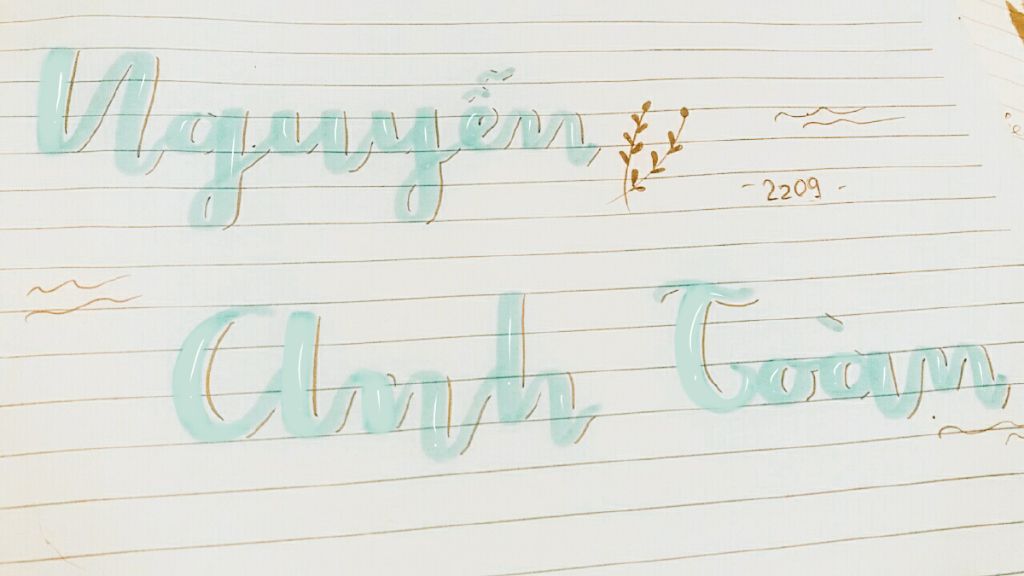 Nguyễn
- 2209 -
Anh Toàn